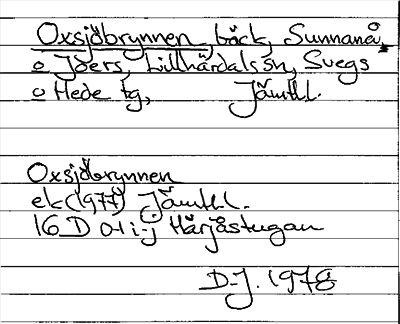 Oxsjöbrynnen, bäck, Sunnanå,
o Joers, Lillhärdals sn, Svegs
o Hede tg, Jämtl.
Oxsjöbrynnen
ek (1977) Jämtl.
16 D 0-1 i-j Härjåstugan
D-J. 1978